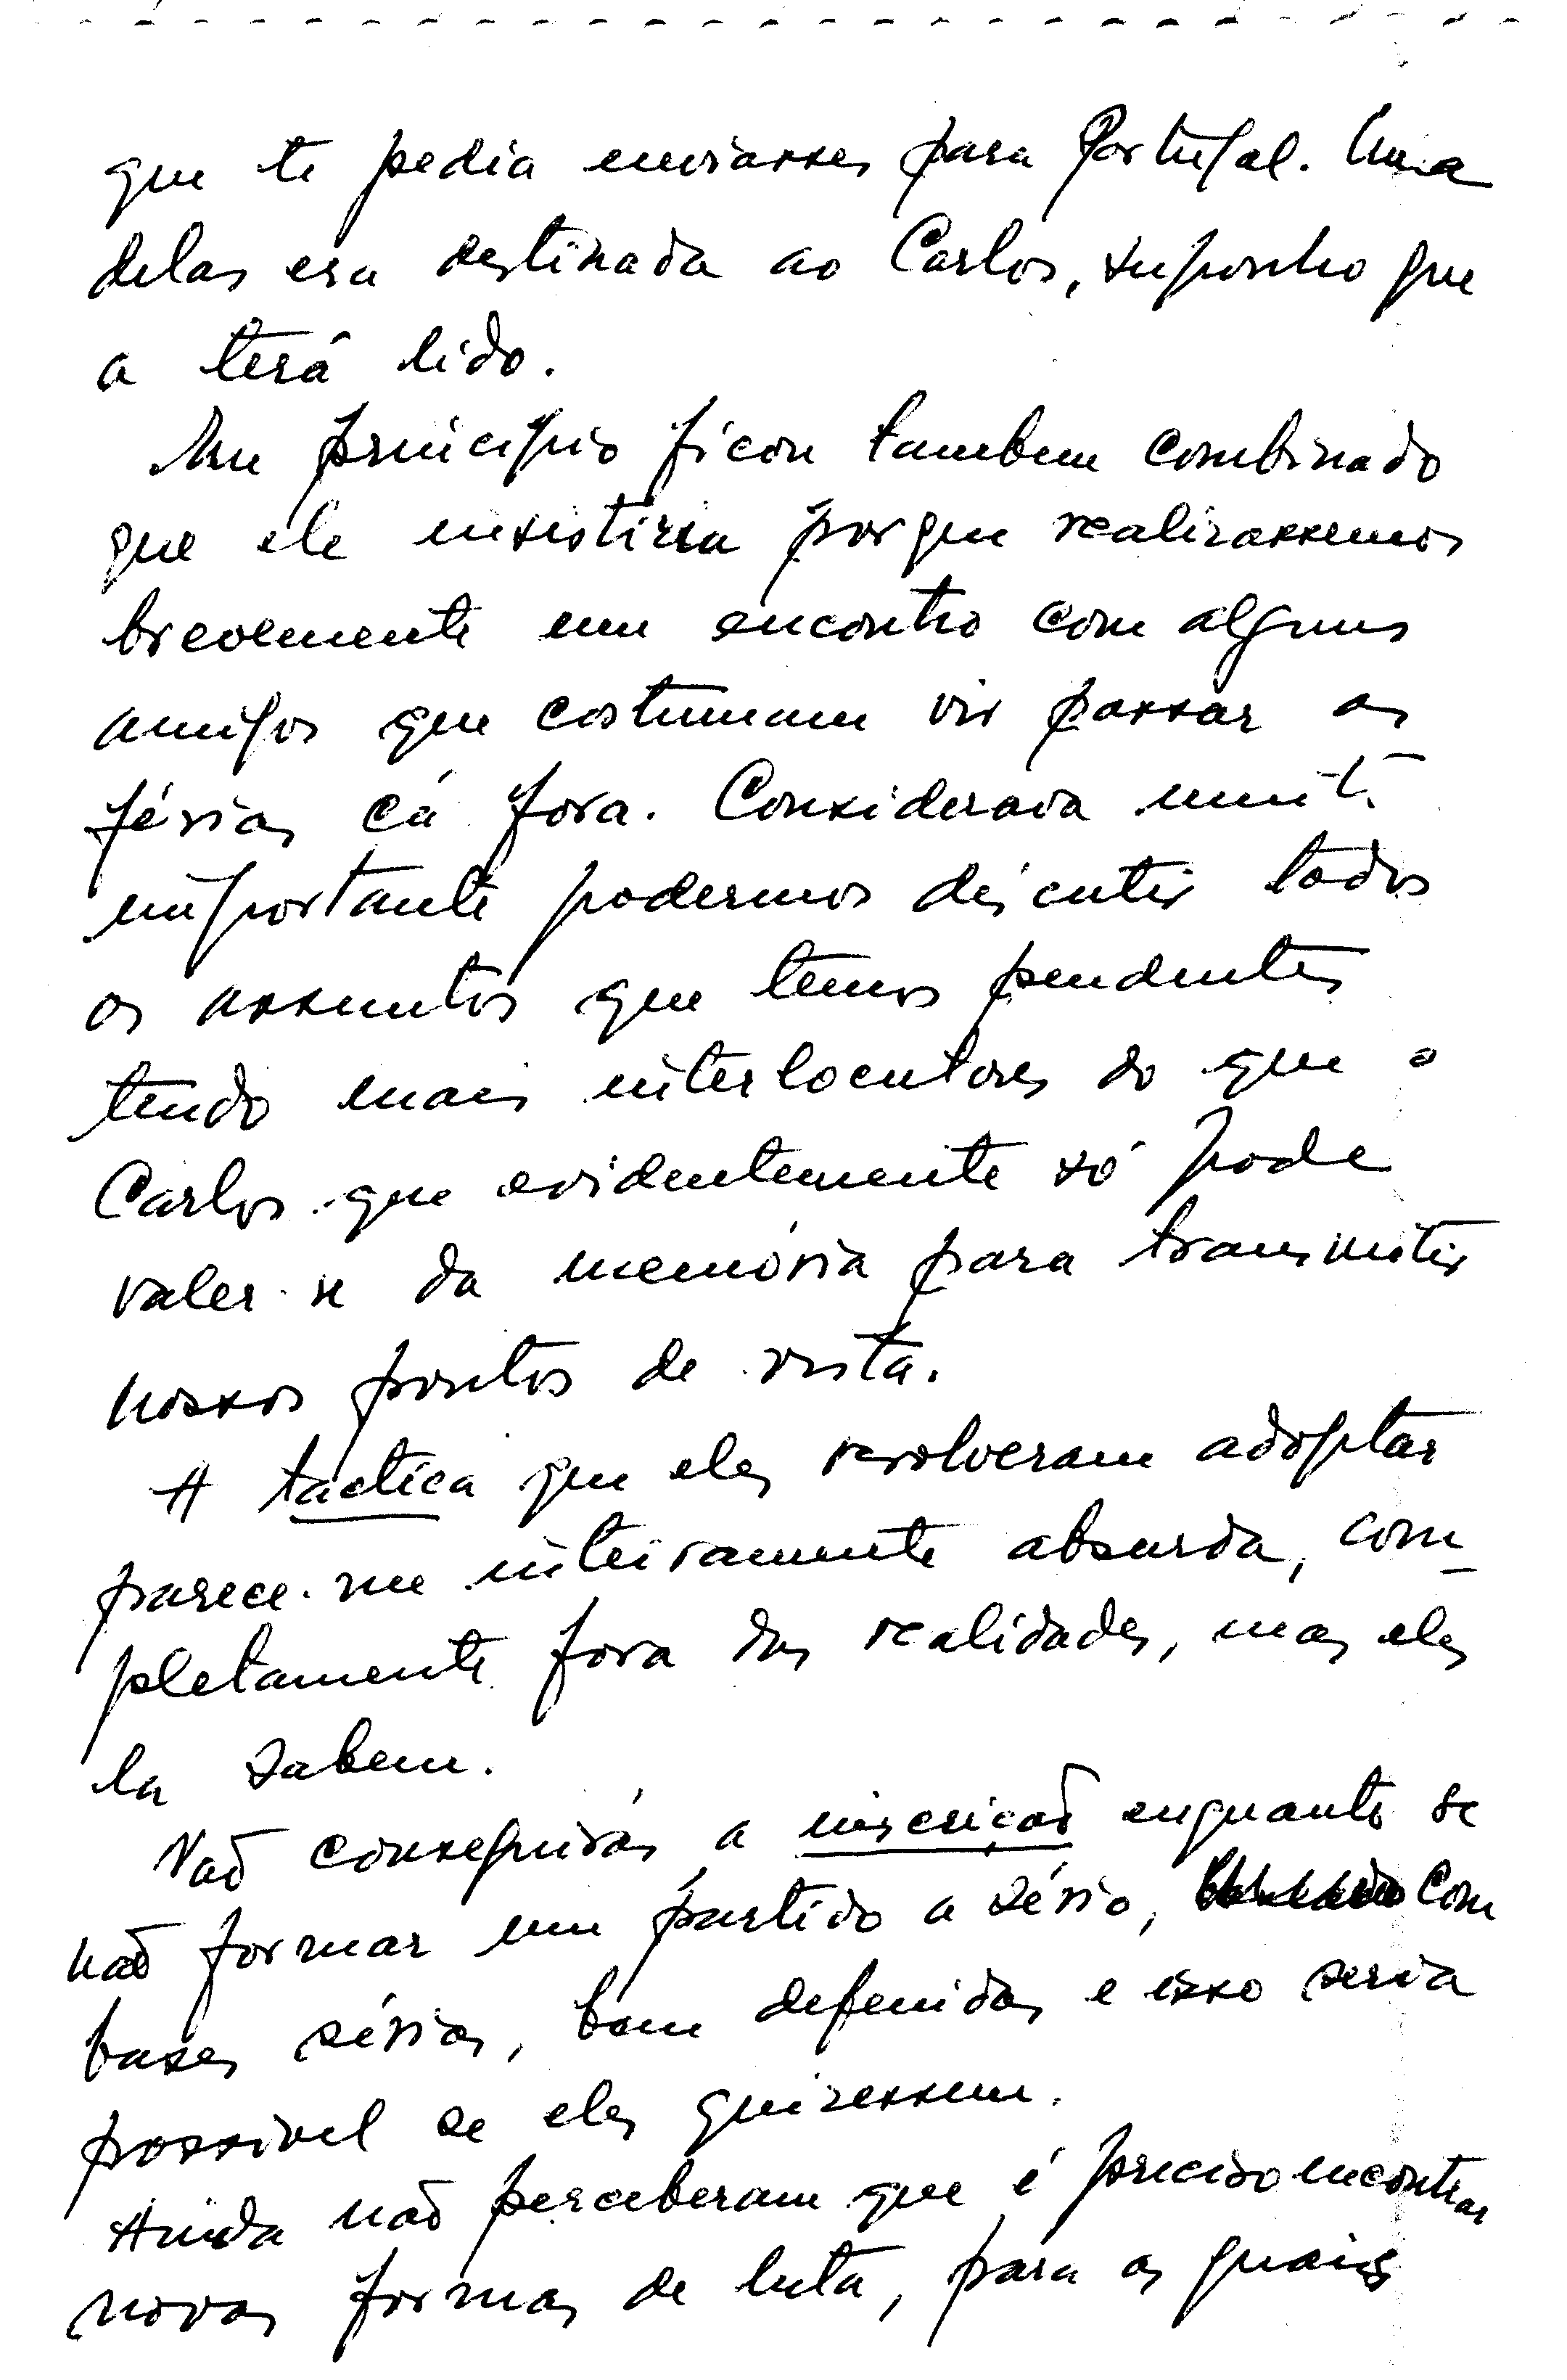 que te pedia enviasses para Portugal. Uma
delas era destinada ao Carlos, suponho que
a terá lido.
Em principio ficou tambem combinado
que ele insistiria porque realizassemos
brevemente um encontro com alguns
amigos que costumam vir passar as
férias cá fora. Considerava muit.
importante podermos discutir todos
os assuntos que temos pendentes
tendo mais interlocutores do que o
Carlos que evidentemente só pode
valer-se da memória para transmitir
nossos pontos de vista.
A tactica que eles resolveram adoptar
parece-me inteiramente absurda, com-
pletamente fora das realidades, mas eles
la sabem.
Não conseguirás a inscrição enquanto se
não formar um partido a sério, com
bases sérias, bem defenidas e isso seria
possivel se eles quizessem.
Ainda não perceberam que é preciso encontrar
novas formas de luta, para as quais